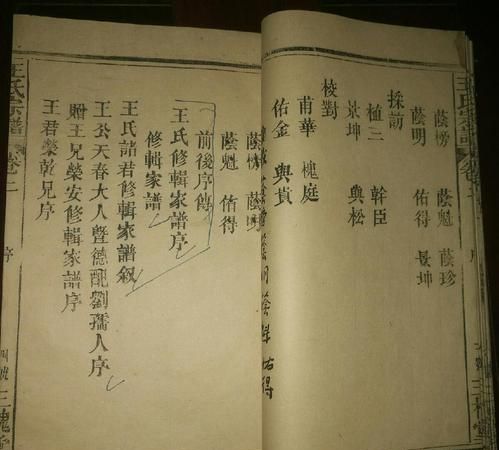 王氏宗譜 卷二
蔭榜 蔭魁 蔭珍
蔭明 佑得 景坤
採訪
植三 幹臣
景坤 興松
校對
甫華 槐庭
佑金 興貴
蔭榜 蔭明
蔭魁 佑得
前後序傳
王氏修輯家譜序
修輯家譜
王氏諸君修輯家譜叙
王公天春大人曁德配劉孺人序
贈王兄榮安修輯家譜序
王君榮乾兄序
王氏宗譜 卷二 序 三槐堂